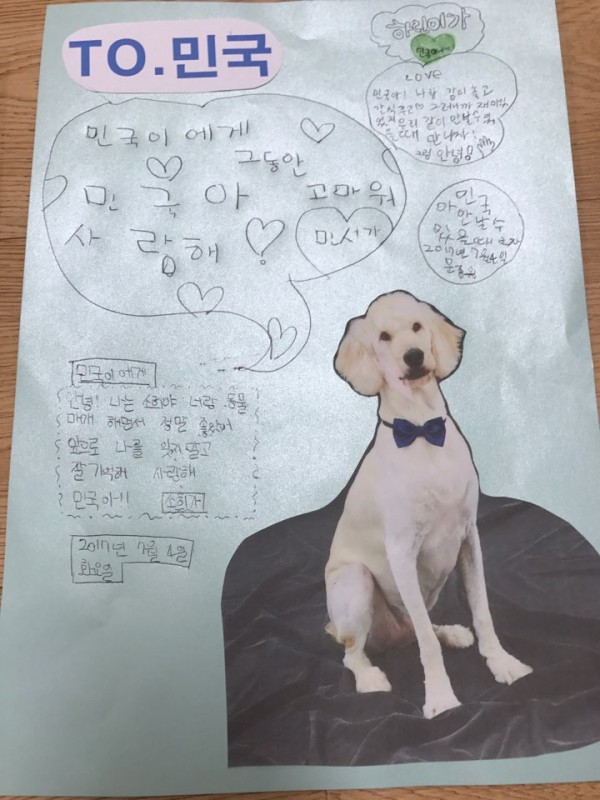 TO.민국
민국이에게
그동안
민국아 고마워
사랑해!
민서가
하린이가
민국에게
LOVE
민국아! 나랑 같이 놀고
간식주고
같이 만날수
만나자!
그럼 안녕!
민국
아 만날 수
있을때 보자
2017년 7월 4일
민국이에게
안녕! 나는 소희야 너랑 동물
매개 하면서 정말 좋았어
앞으로 나를 잊지말고
잘 기억해 사랑해
민국아!! 소희가
2017년 7월 4일
화요일